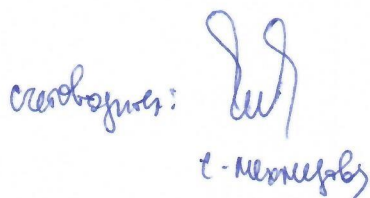 счетоводител:
с. Мехмедова